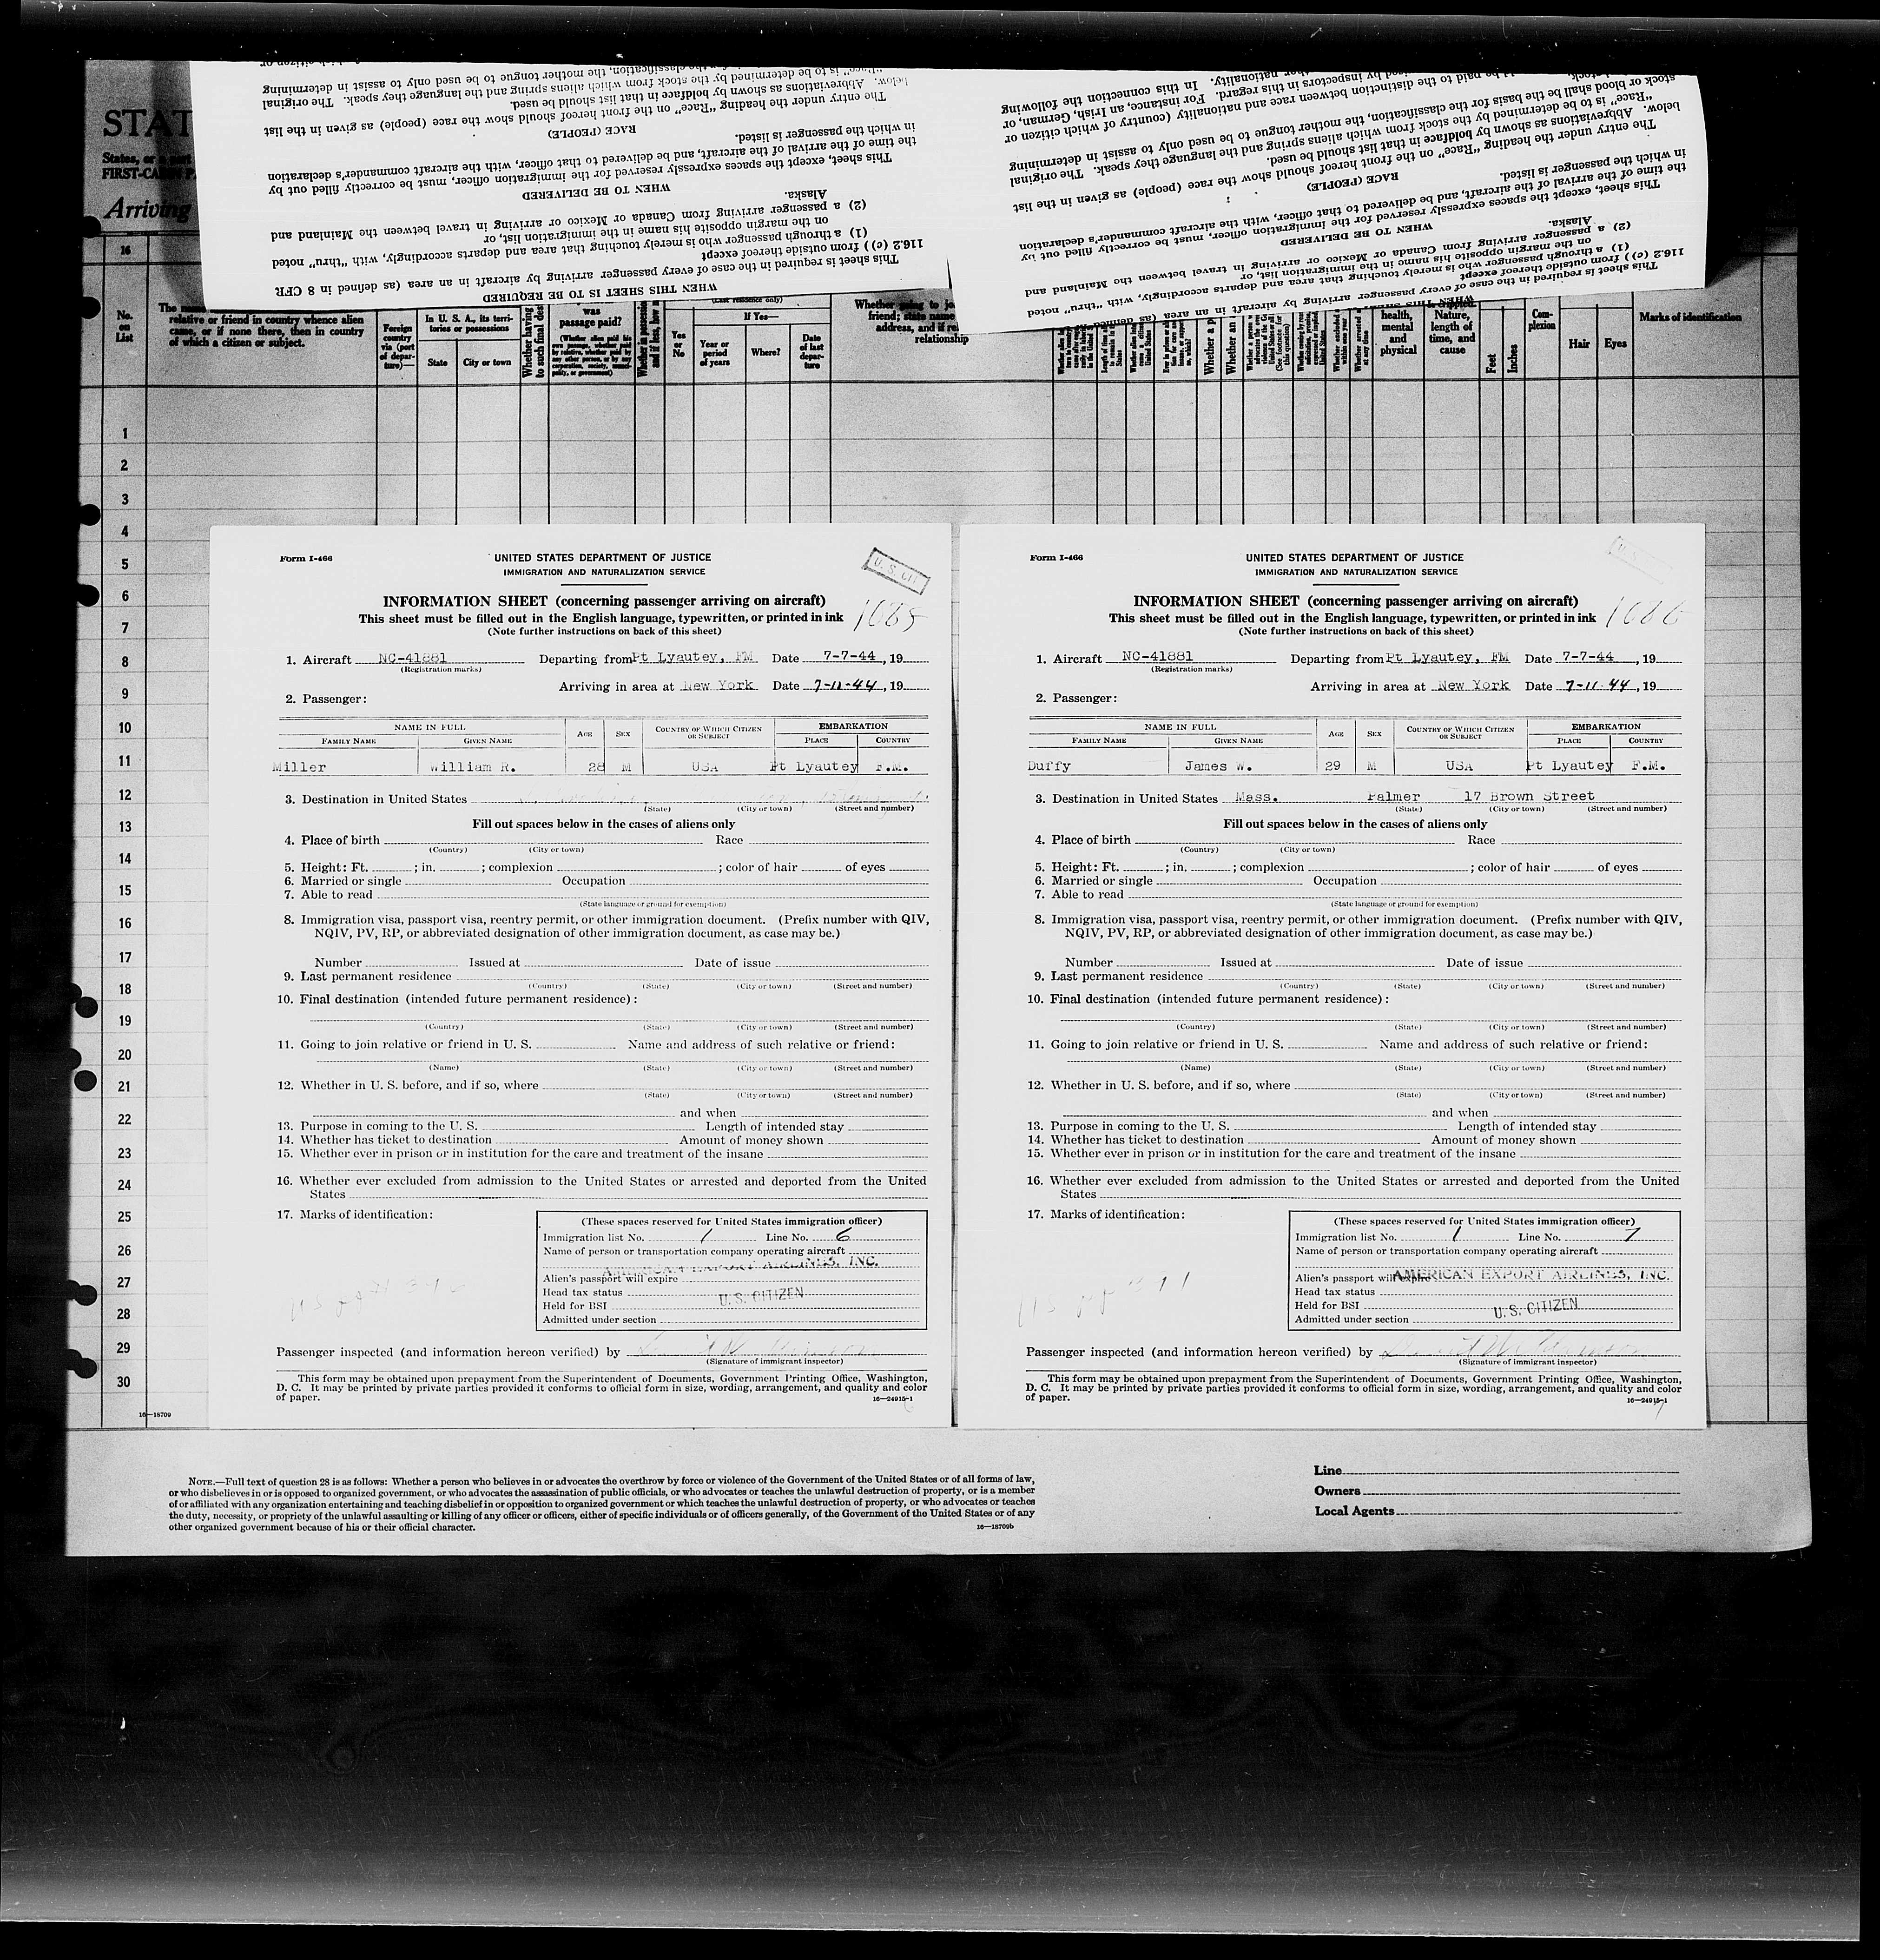 STAT
States, or a part
FIRST-CABIN P
Arriving
WHEN THIS SHEET IS TO BE REQUIRED
This sheet is required in the case of every passenger arriving by aircraft in an area (as defined in 8 CFR
116.2 (c)) from outside thereof except
(1) a through passenger who is merely touching that area and departs accordingly, with "thru" noted
on the margin opposite his name in the immigration list, or
(2) a passenger arriving from Canada or Mexico or arriving in travel between the Mainland and
Alaska.
WHEN TO BE DELIVERED
This sheet, except the spaces expressly reserved for the immigration officer, must be correctly filled out by
the time of the arrival of the aircraft, and be delivered to that officer, with the aircraft commander's declaration
in which the passenger is listed.
RACE (PEOPLE)
The entry under the heading "Race" on the front hereof should show the race (people) as given in the list
below. Abbreviations as shown by boldface in that list should be used.
"Race" is to be determined by the stock from which aliens spring and the language they speak. The original
classification, the mother tongue to be used only to assist in determining
WHEN THIS SHEET IS
This sheet is required in the case of every passenger arriving by aircraft in an area (as defined
116.2 (c)) from outside thereof except
(1) a through passenger who is merely touching that area and departs accordingly, with "thru" noted
on the margin opposite his name in the immigration list, or
(2) a passenger arriving from Canada or Mexico or arriving in travel between the Mainland and
Alaska.
WHEN TO BE DELIVERED
This sheet, except the spaces expressly reserved for the immigration officer, must be correctly filled out by
the time of the arrival of the aircraft, and be delivered to that officer, with the aircraft commander's declaration
in which the passenger is listed.
RACE (PEOPLE)
The entry under the heading "Race" on the front hereof should show the race (people) as given in the list
below. Abbreviations as shown by boldface in that list should be used.
"Race" is to be determined by the stock from which aliens spring and the language they speak. The original
stock or blood shall be the basis for the classification, the mother tongue to be used only to assist in determining
be paid to the distinction between race and nationality (country of which citizen or
by inspectors in this regard. For instance, an Irish, German, or
nationality. In this connection the following
16
No. on List
relative or friend in country whence alien
came, or if none there, then in country
of which a citizen or subject.
Foreign country via (port of departure)—
In U. S. A., its territories or possessions
State
City or town
Whether having
to such final des
was passage paid?
Yes or No
If Yes—
Year or period of years
Where?
Date of last departure
Whether going to jo
friend; state name
address, and if rel
relationship
health, mental and physical
Nature, length of time, and cause
Feet
Inches
Complexion
Hair
Eyes
Marks of identification
1
2
3
4
5
6
7
8
9
10
11
12
13
14
15
16
17
18
19
20
21
22
23
24
25
26
27
28
29
30
16—18709
Form I-466
UNITED STATES DEPARTMENT OF JUSTICE
IMMIGRATION AND NATURALIZATION SERVICE
U. S. CIT
INFORMATION SHEET (concerning passenger arriving on aircraft)
This sheet must be filled out in the English language, typewritten, or printed in ink
1085
(Note further instructions on back of this sheet)
1. Aircraft NC-41881 Departing from Pt Lyautey, FM Date 7-7-44, 19
(Registration marks)
Arriving in area at New York Date 7-11-44, 19
2. Passenger:
NAME IN FULL
FAMILY NAME
GIVEN NAME
AGE
SEX
COUNTRY OF WHICH CITIZEN OR SUBJECT
EMBARKATION
PLACE
COUNTRY
Miller William R. 28 M USA Pt Lyautey F.M.
3. Destination in United States
(State) (City or town) (Street and number)
Fill out spaces below in the cases of aliens only
4. Place of birth Race
(Country) (City or town)
5. Height: Ft. ; in. ; complexion ; color of hair of eyes
6. Married or single Occupation
7. Able to read
(State language or ground for exemption)
8. Immigration visa, passport visa, reentry permit, or other immigration document. (Prefix number with QIV,
NQIV, PV, RP, or abbreviated designation of other immigration document, as case may be.)
Number Issued at Date of issue
9. Last permanent residence
(Country) (State) (City or town) (Street and number)
10. Final destination (intended future permanent residence):
(Country) (State) (City or town) (Street and number)
11. Going to join relative or friend in U. S. Name and address of such relative or friend:
(Name) (State) (City or town) (Street and number)
12. Whether in U. S. before, and if so, where
(State) (City or town) (Street and number)
and when
13. Purpose in coming to the U. S. Length of intended stay
14. Whether has ticket to destination Amount of money shown
15. Whether ever in prison or in institution for the care and treatment of the insane
16. Whether ever excluded from admission to the United States or arrested and deported from the United
States
17. Marks of identification:
(These spaces reserved for United States immigration officer)
Immigration list No. 1 Line No. 6
Name of person or transportation company operating aircraft
AMERICAN EXPORT AIRLINES, INC.
Alien's passport will expire
Head tax status
U. S. CITIZEN
Held for BSI
Admitted under section
Passenger inspected (and information hereon verified) by
(Signature of immigrant inspector)
This form may be obtained upon prepayment from the Superintendent of Documents, Government Printing Office, Washington,
D. C. It may be printed by private parties provided it conforms to official form in size, wording, arrangement, and quality and color
of paper.
16—24915-1
Form I-466
UNITED STATES DEPARTMENT OF JUSTICE
IMMIGRATION AND NATURALIZATION SERVICE
INFORMATION SHEET (concerning passenger arriving on aircraft)
This sheet must be filled out in the English language, typewritten, or printed in ink
1086
(Note further instructions on back of this sheet)
1. Aircraft NC-41881 Departing from Pt Lyautey, FM Date 7-7-44, 19
(Registration marks)
Arriving in area at New York Date 7-11-44, 19
2. Passenger:
NAME IN FULL
FAMILY NAME
GIVEN NAME
AGE
SEX
COUNTRY OF WHICH CITIZEN OR SUBJECT
EMBARKATION
PLACE
COUNTRY
Duffy James W. 29 M USA Pt Lyautey F.M.
3. Destination in United States Mass. Palmer 17 Brown Street
(State) (City or town) (Street and number)
Fill out spaces below in the cases of aliens only
4. Place of birth Race
(Country) (City or town)
5. Height: Ft. ; in. ; complexion ; color of hair of eyes
6. Married or single Occupation
7. Able to read
(State language or ground for exemption)
8. Immigration visa, passport visa, reentry permit, or other immigration document. (Prefix number with QIV,
NQIV, PV, RP, or abbreviated designation of other immigration document, as case may be.)
Number Issued at Date of issue
9. Last permanent residence
(Country) (State) (City or town) (Street and number)
10. Final destination (intended future permanent residence):
(Country) (State) (City or town) (Street and number)
11. Going to join relative or friend in U. S. Name and address of such relative or friend:
(Name) (State) (City or town) (Street and number)
12. Whether in U. S. before, and if so, where
(State) (City or town) (Street and number)
and when
13. Purpose in coming to the U. S. Length of intended stay
14. Whether has ticket to destination Amount of money shown
15. Whether ever in prison or in institution for the care and treatment of the insane
16. Whether ever excluded from admission to the United States or arrested and deported from the United
States
17. Marks of identification:
(These spaces reserved for United States immigration officer)
Immigration list No. 1 Line No. 7
Name of person or transportation company operating aircraft
AMERICAN EXPORT AIRLINES, INC.
Alien's passport will expire
Head tax status
U. S. CITIZEN
Held for BSI
Admitted under section
Passenger inspected (and information hereon verified) by
(Signature of immigrant inspector)
This form may be obtained upon prepayment from the Superintendent of Documents, Government Printing Office, Washington,
D. C. It may be printed by private parties provided it conforms to official form in size, wording, arrangement, and quality and color
of paper.
16—24915-1
NOTE.—Full text of question 28 is as follows: Whether a person who believes in or advocates the overthrow by force or violence of the Government of the United States or of all forms of law,
or who disbelieves in or is opposed to organized government, or who advocates the assassination of public officials, or who advocates or teaches the unlawful destruction of property, or is a member
of or affiliated with any organization entertaining and teaching disbelief in or opposition to organized government or which teaches the unlawful destruction of property, or who advocates or teaches
the duty, necessity, or propriety of the unlawful assaulting or killing of any officer or officers, either of specific individuals or of officers generally, of the Government of the United States or of any
other organized government because of his or their official character.
16—18709b
Line
Owners
Local Agents